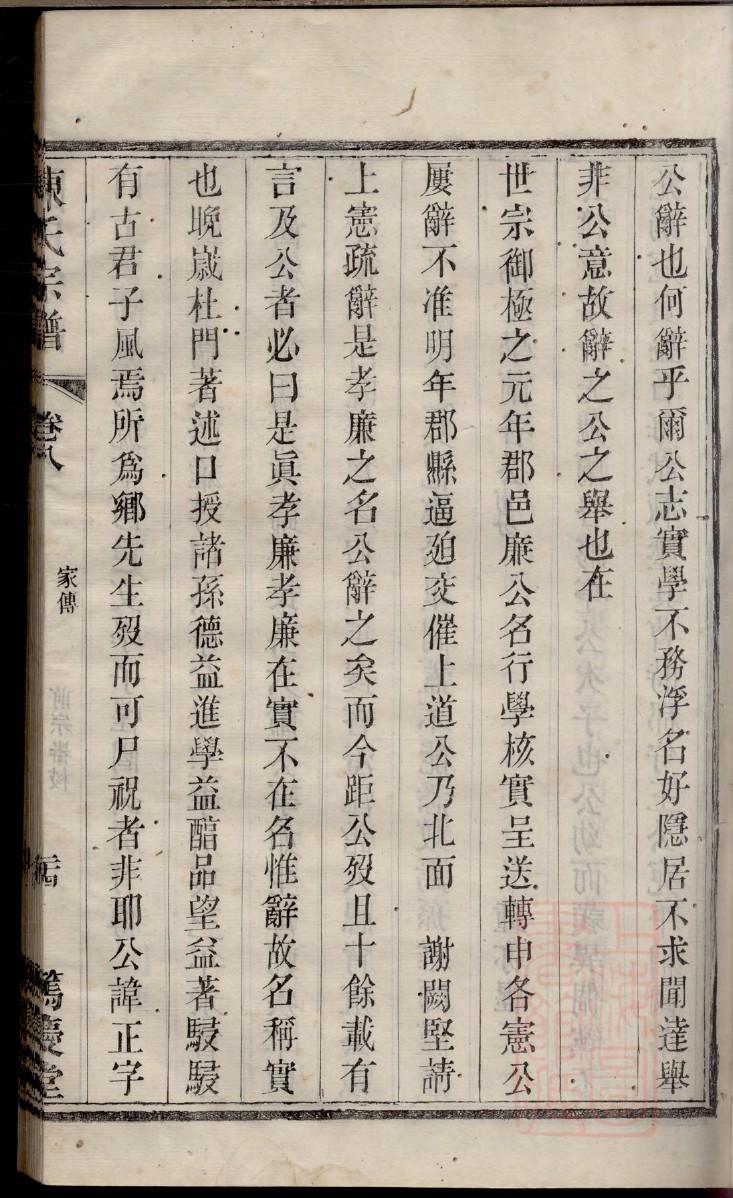 公辭也何辭乎爾公志實學不務浮名好隱居不求聞達舉
非公意故辭之公之舉也在
世宗御極之元年郡邑廉公名行學核實呈送轉申各憲公
屢辭不准明年郡縣逼廹交催上道公乃北面 謝闕堅請
上憲疏辭是孝廉之名公辭之矣而今距公歿且十餘載有
言及公者必曰是眞孝廉孝廉在實不在名惟辭故名稱實
也晚歲杜門著述口授諸孫德益進學益醕品望益著駸駸
有古君子風焉所爲鄉先生歿而可尸祝者非耶公諱正字
陳氏宗譜 卷八 家傳 篤慶堂